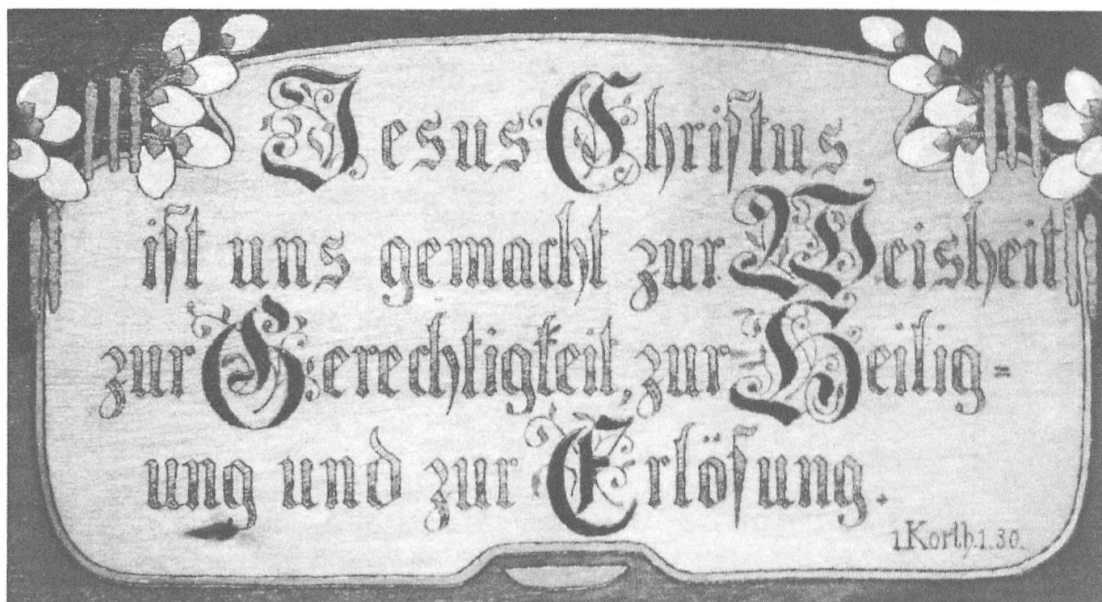 Jesus Christus
ist uns gemacht zur Weisheit
zur Gerechtigkeit, zur Heilig=
ung und zur Erlösung.
1. Korth. 1. 30.